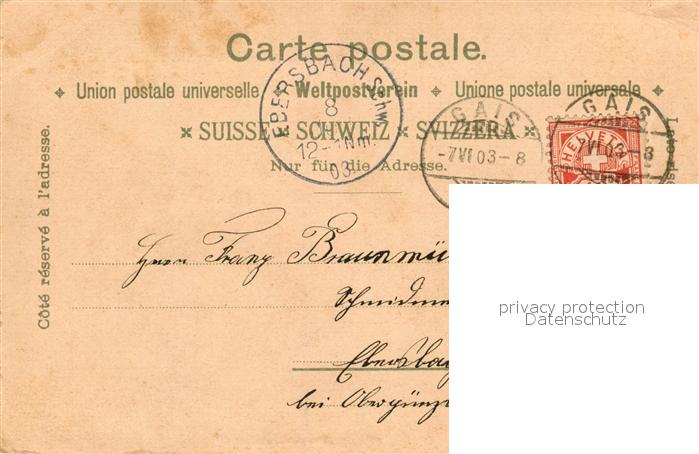 Carte postale.
✧ Union postale universelle ✧ Weltpostverein ✧ Unione postale universale ✧
× SUISSE × SCHWEIZ × SVIZZERA ×
Nur für die Adresse.
Côté réservé à l'adresse.
EBERSBACH Schw.
8
12-1Nm.
03
GAIS
-7VI03-8
GAIS
-7VI03-8
HELVETIA
Herrn Franz Braunmü
Ebersba
bei Obergünz
privacy protection
Datenschutz